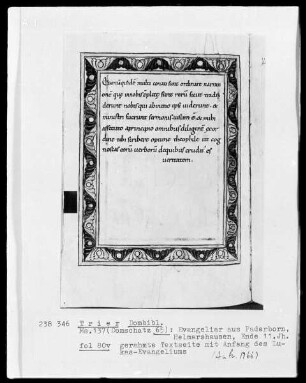 Quoniã quidẽ multi conati sunt ordinare narrati
onẽ que in nobis cõplete sunt rerũ sicut tradi
derunt nobis qui ab initio ipsi uiderunt. et
ministri fuerunt sermonis uisum ẽ et mihi
assecuto a principio omnibus diligent ex or
dine tibi scribere optime theophile ut cog
noscas eorũ uerborũ de quibus eruditus es
ueritatem.
238 346 Trier Dombibl.
No.137(Domschatz 65): Evangeliar aus Paderborn,
Helmarshausen, Ende 11.Jh.
fol 80v gerahmte Textseite mit Anfang des Lu-
kas-Evangeliums